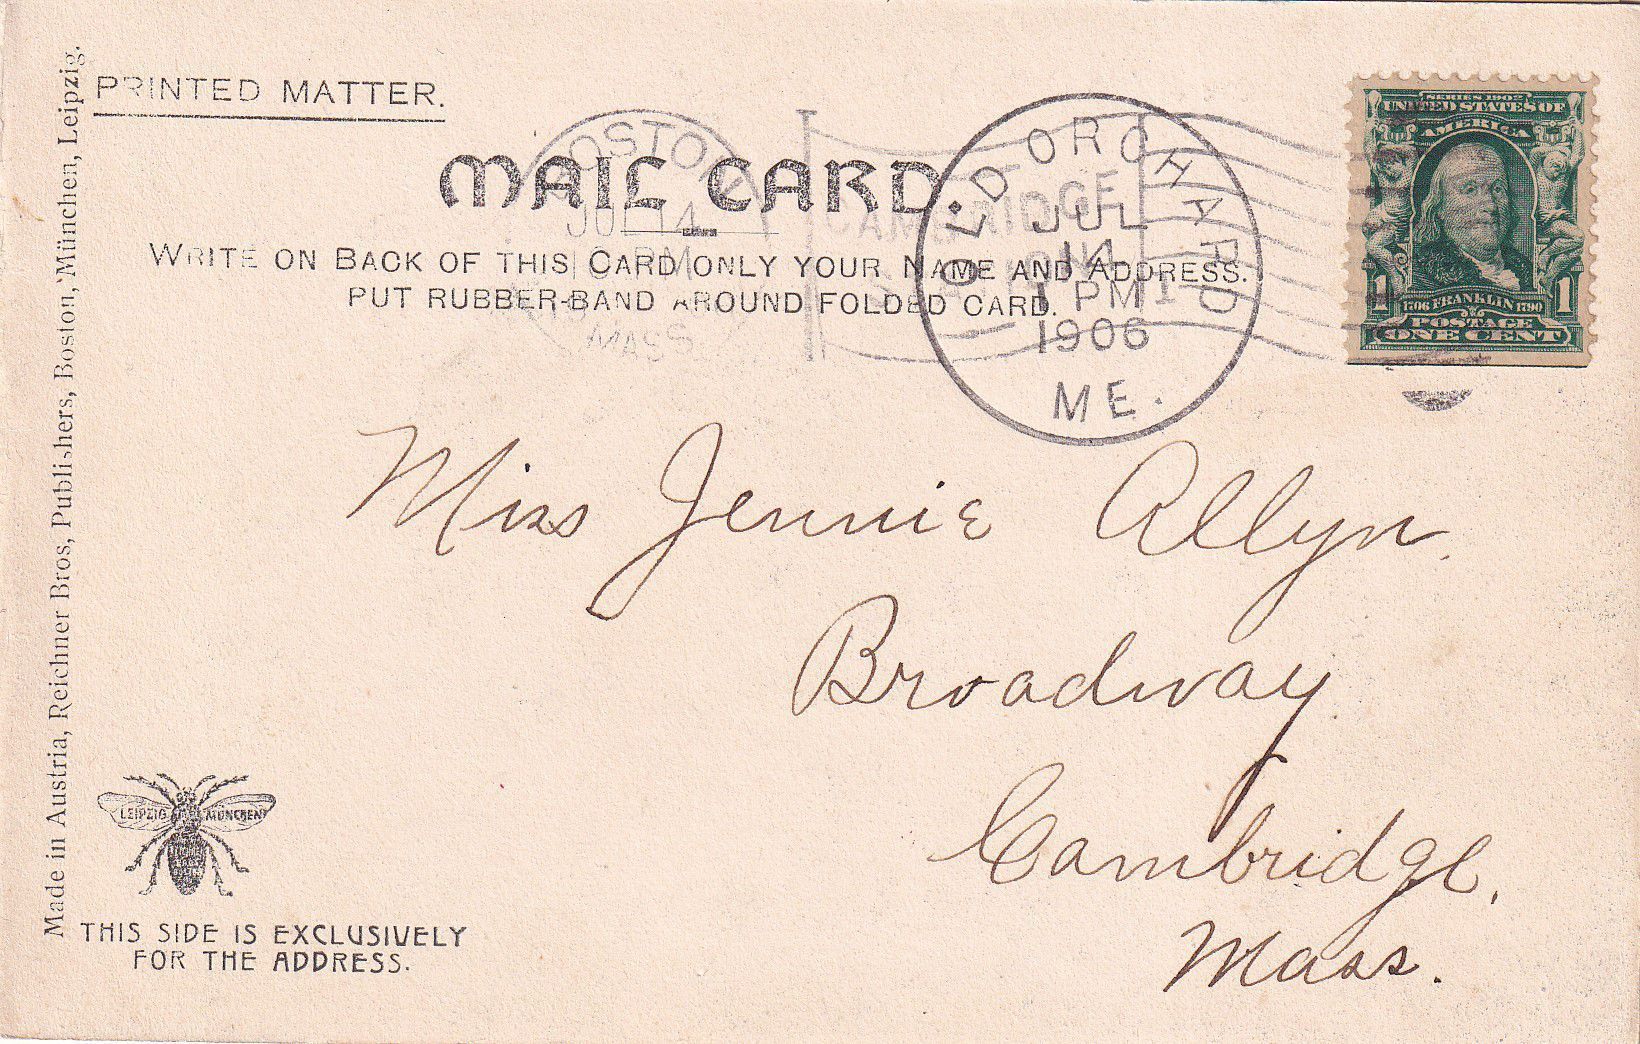 PRINTED MATTER.
MAIL CARD
WRITE ON BACK OF THIS CARD ONLY YOUR NAME AND ADDRESS.
PUT RUBBER-BAND AROUND FOLDED CARD.
BOSTON
JUL 14
MASS
CAMBRIDGE
STATION
OLD ORCHARD
JUL
14
1 PM
1906
ME.
SERIES 1902
UNITED STATES OF
AMERICA
1 1706 FRANKLIN 1790 1
POSTAGE
ONE CENT
Miss Jennie Allyn
Broadway
Cambridge,
Mass.
Made in Austria, Reichner Bros, Publishers, Boston, München, Leipzig.
LEIPZIG MÜNCHEN
THIS SIDE IS EXCLUSIVELY
FOR THE ADDRESS.